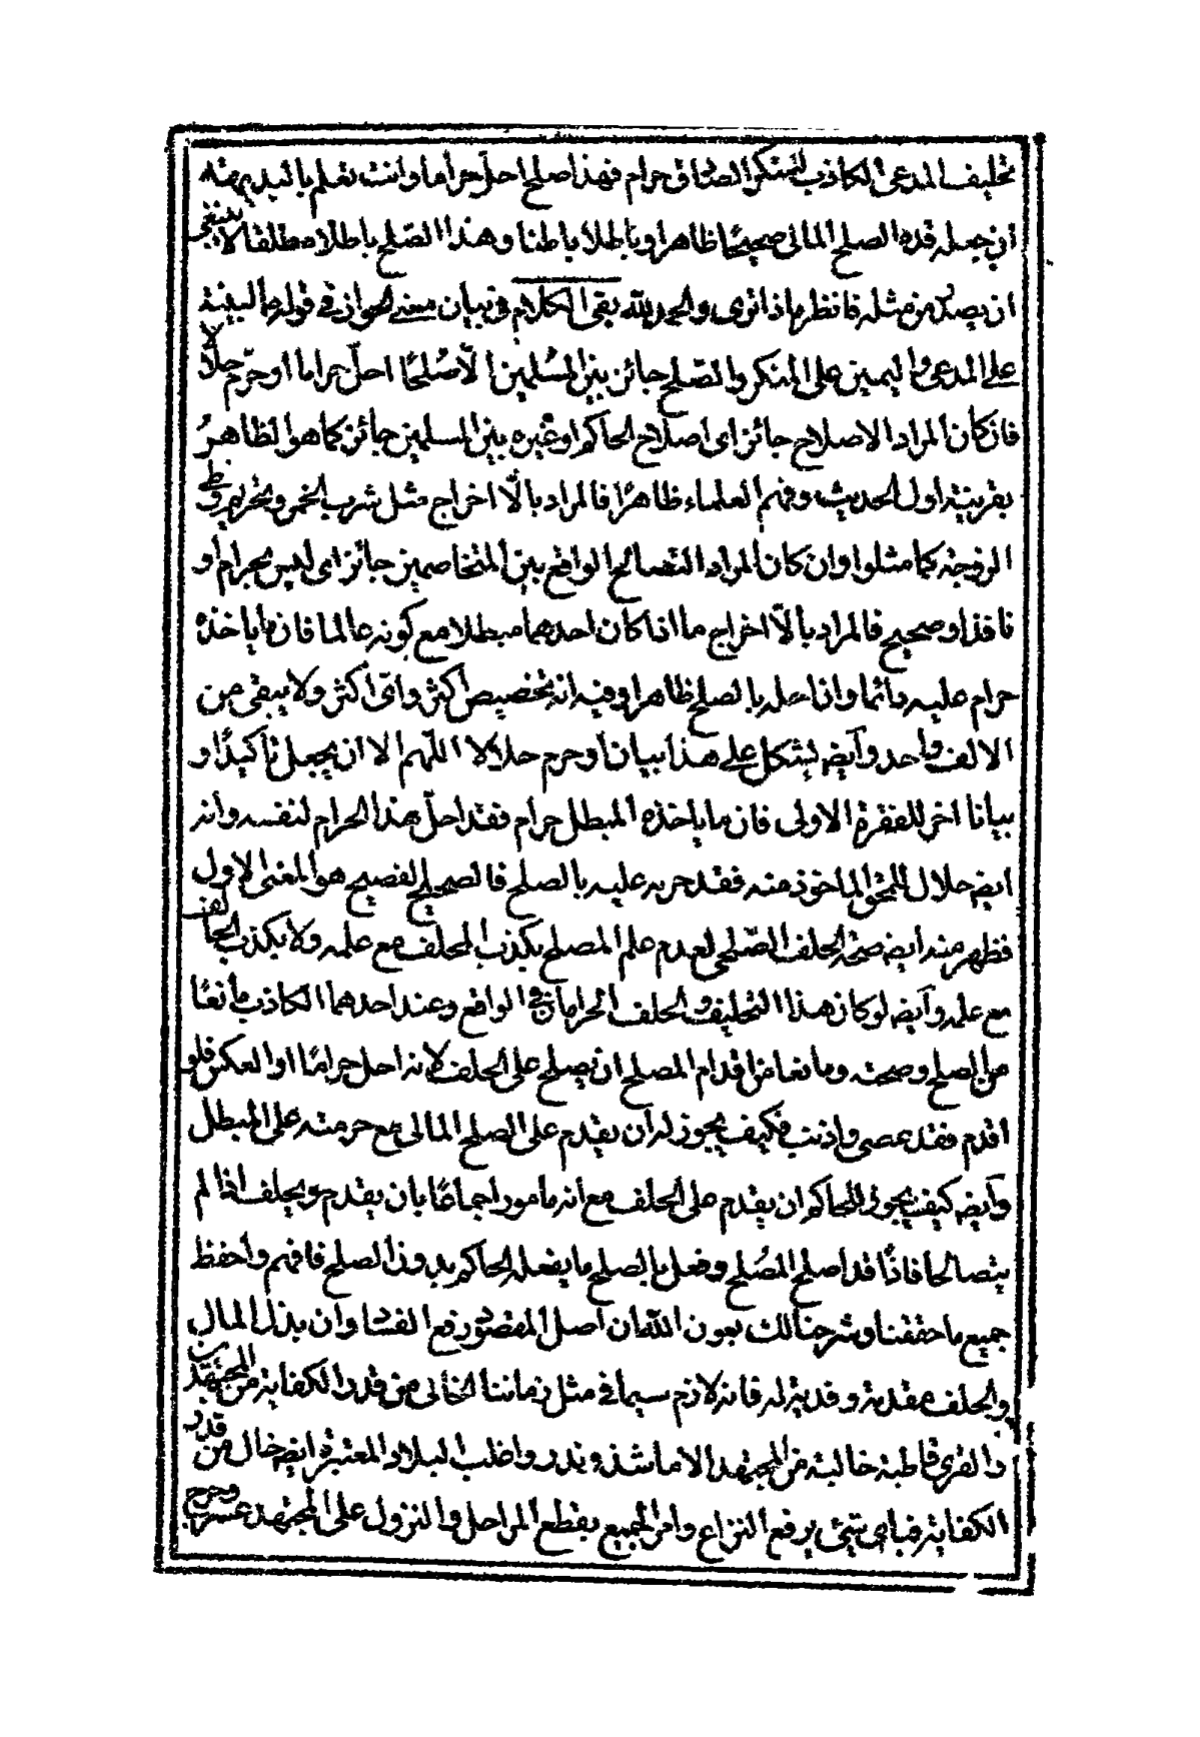 تحليف المدعى الكاذب للمنكر الصادق حرام فهذا صلح احلّ حراما وانت تعلم بالبديهته
ان جعله قده الصلح المالى صحيحًا ظاهرا وباطلا باطنا وهذا الصّلح باطلا مطلقا لا ينبغى
ان يصدر من مثله فانظر ماذا ترى والحمد لله بقى الكلام فى بيان معنى الجواز فى قولهما البينة
على المدعى واليمين على المنكر والصّلح جائز بين المسُلمين الّا صُلحًا احلّ حراما او حرّم حلالا
فان كان المراد الاصلاح جائز اى اصلاح الحاكم او غيره بين المسلمين جائز كما هو الظاهرُ
بقرينة اول الحديث وفهم العلماء ظاهرًا فالمراد بالّا اخراج مثل شرب الخمر وتحريم وطى
الزوجة كما مثلوا وان كان المراد التصالح الواقع بين المتخاصمين جائز اى ليس بحرام او
نافذ او صحيح فالمراد بالّا اخراج ما اذا كان احدهما مبطلا مع كونه عالما فان ما ياخذه
حرام عليه دائما وانا حله بالصلح ظاهرا وفيه انه تخصيص اكثر واىّ اكثر ولا يبقى من
الالف واحد وآيضه يشكل على هذا بيان او حرم حلالا اللّهم الا ان يجعل تأكيدًا و
بيانا اخر للفقرة الاولى فان ما ياخذه المبطل حرام فقد احلّ هذا الحرام لنفسه وانه
ايضه حلال للمحق الماخوذ منه فقد حرم عليه بالصلح فالصحيح الفصيح هو المعنى الاول
فظهر منه ايضه صحّة الحلف الصّلحى لعدم علم المصلح بكذب المحلف مع علمه ولا بكذب الحالف
مع علمه وآيضه لو كان هذا التحليف والحلف الحرامان فى الواقع وعند احدهما الكاذب مانعًا
من الصلح وصحته ومانعا من اقدام المصلح ان يصلح على الحلف لانه احل حرامًا او العكس فلو
اقدم فقد عصى واذنب فكيف يجوز له ان يقدم على الصلح المالى مع حرمته على المبطل
وآيضه كيف يجوز للحاكم ان يقدم على الحلف مع انه مامور اجماعًا بان يقدم ويحلف اذا لم
يتصالحا فاذًا قد اصلح المصُلح وفعل بالصلح ما يفعله الحاكم بدون الصلح فافهم واحفظ
جميع ما حققنا وشرحنا لك بعون الله فان اصل المقصود رفع الفساد وان بذل المال
والحلف مقدمة وفدية له فانه لازم سيما فى مثل زماننا الخالى من قدر الكفاية من المجتهدين
والقرى قاطبة خالية من المجتهد الا ما شذ وندر واغلب البلاد المعتبرة ايضه خال من قدر
الكفاية فباى شئ يرفع النزاع وامر الجميع بقطع المراحل والنزول على المجتهد عسر وحرج